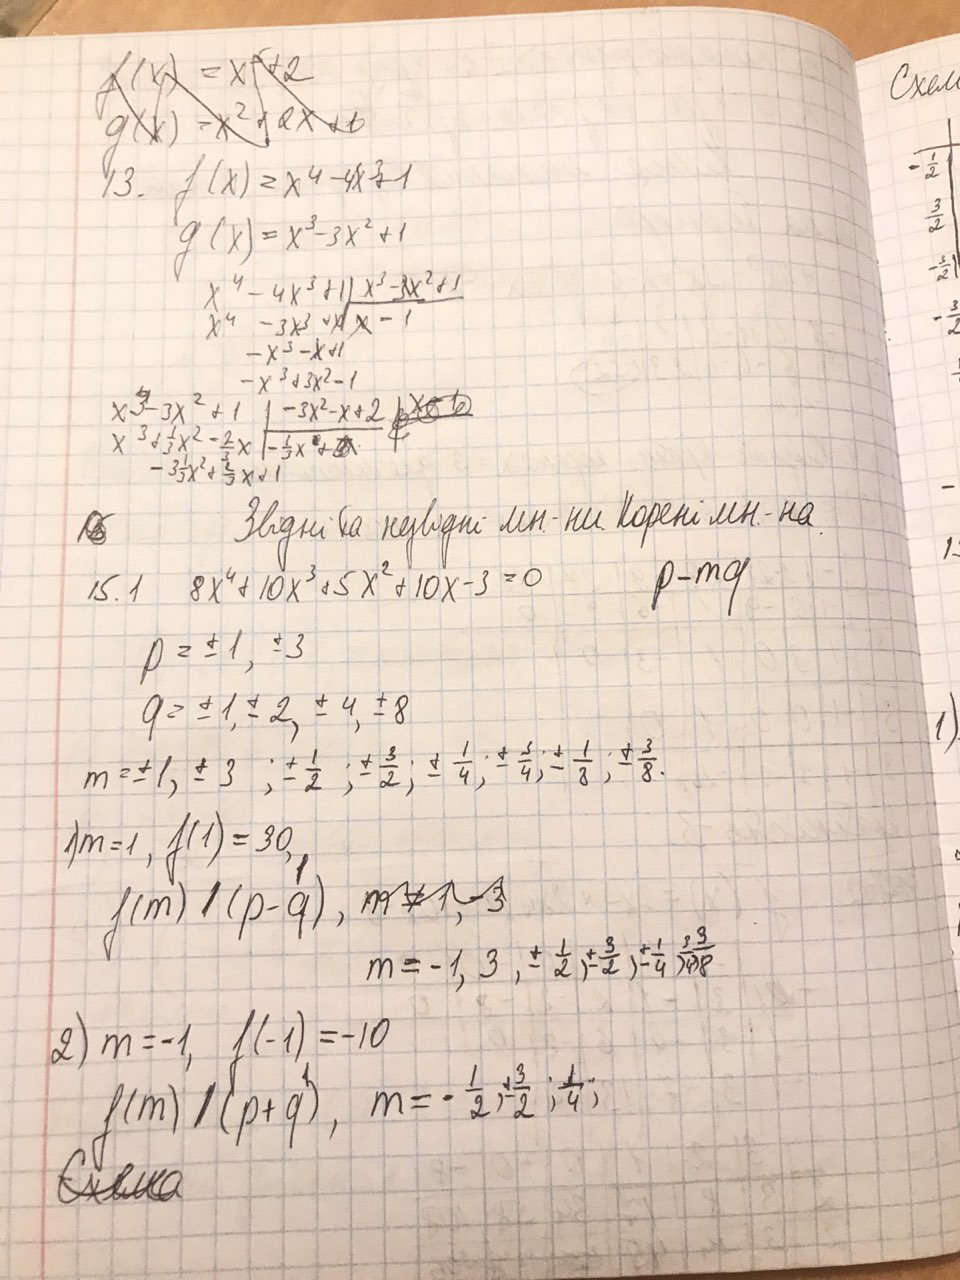 f(x) = x⁵+2
g(x) = x² + 2x + 6
13. f(x) = x⁴ - 4x³ + 1
g(x) = x³ - 3x² + 1
x⁴ - 4x³ + 1 | x³ - 3x² + 1
x⁴ - 3x³ + x | x - 1
- x³ - x + 1
- x³ + 3x² - 1
x³ - 3x² + 1 | -3x² - x + 2
x³ + 1/3x² - 2/3x | -1/3x
- 3 1/3x² + 2/3x + 1
Звідні та незвідні мн-ни. Корені мн-на
15.1 8x⁴ + 10x³ + 5x² + 10x - 3 = 0 p - mq
p = ±1, ±3
q = ±1, ± 2, ± 4, ± 8
m = ±1, ± 3 ; ± 1/2 ; ± 3/2 ; ± 1/4 ; ± 3/4 ; ± 1/8 ; ± 3/8.
1) m = 1, f(1) = 30,
f(m) / (p - q), m ≠ 1, -3
m = -1, 3, ± 1/2, ± 3/2, ± 1/4, 3/4, 3/8
2) m = -1, f(-1) = -10
f(m) / (p + q), m = - 1/2, ± 3/2 ; 1/4 ;
Схема
Схем
- 1/2
3/2
- 3/2
- 3/2
1)